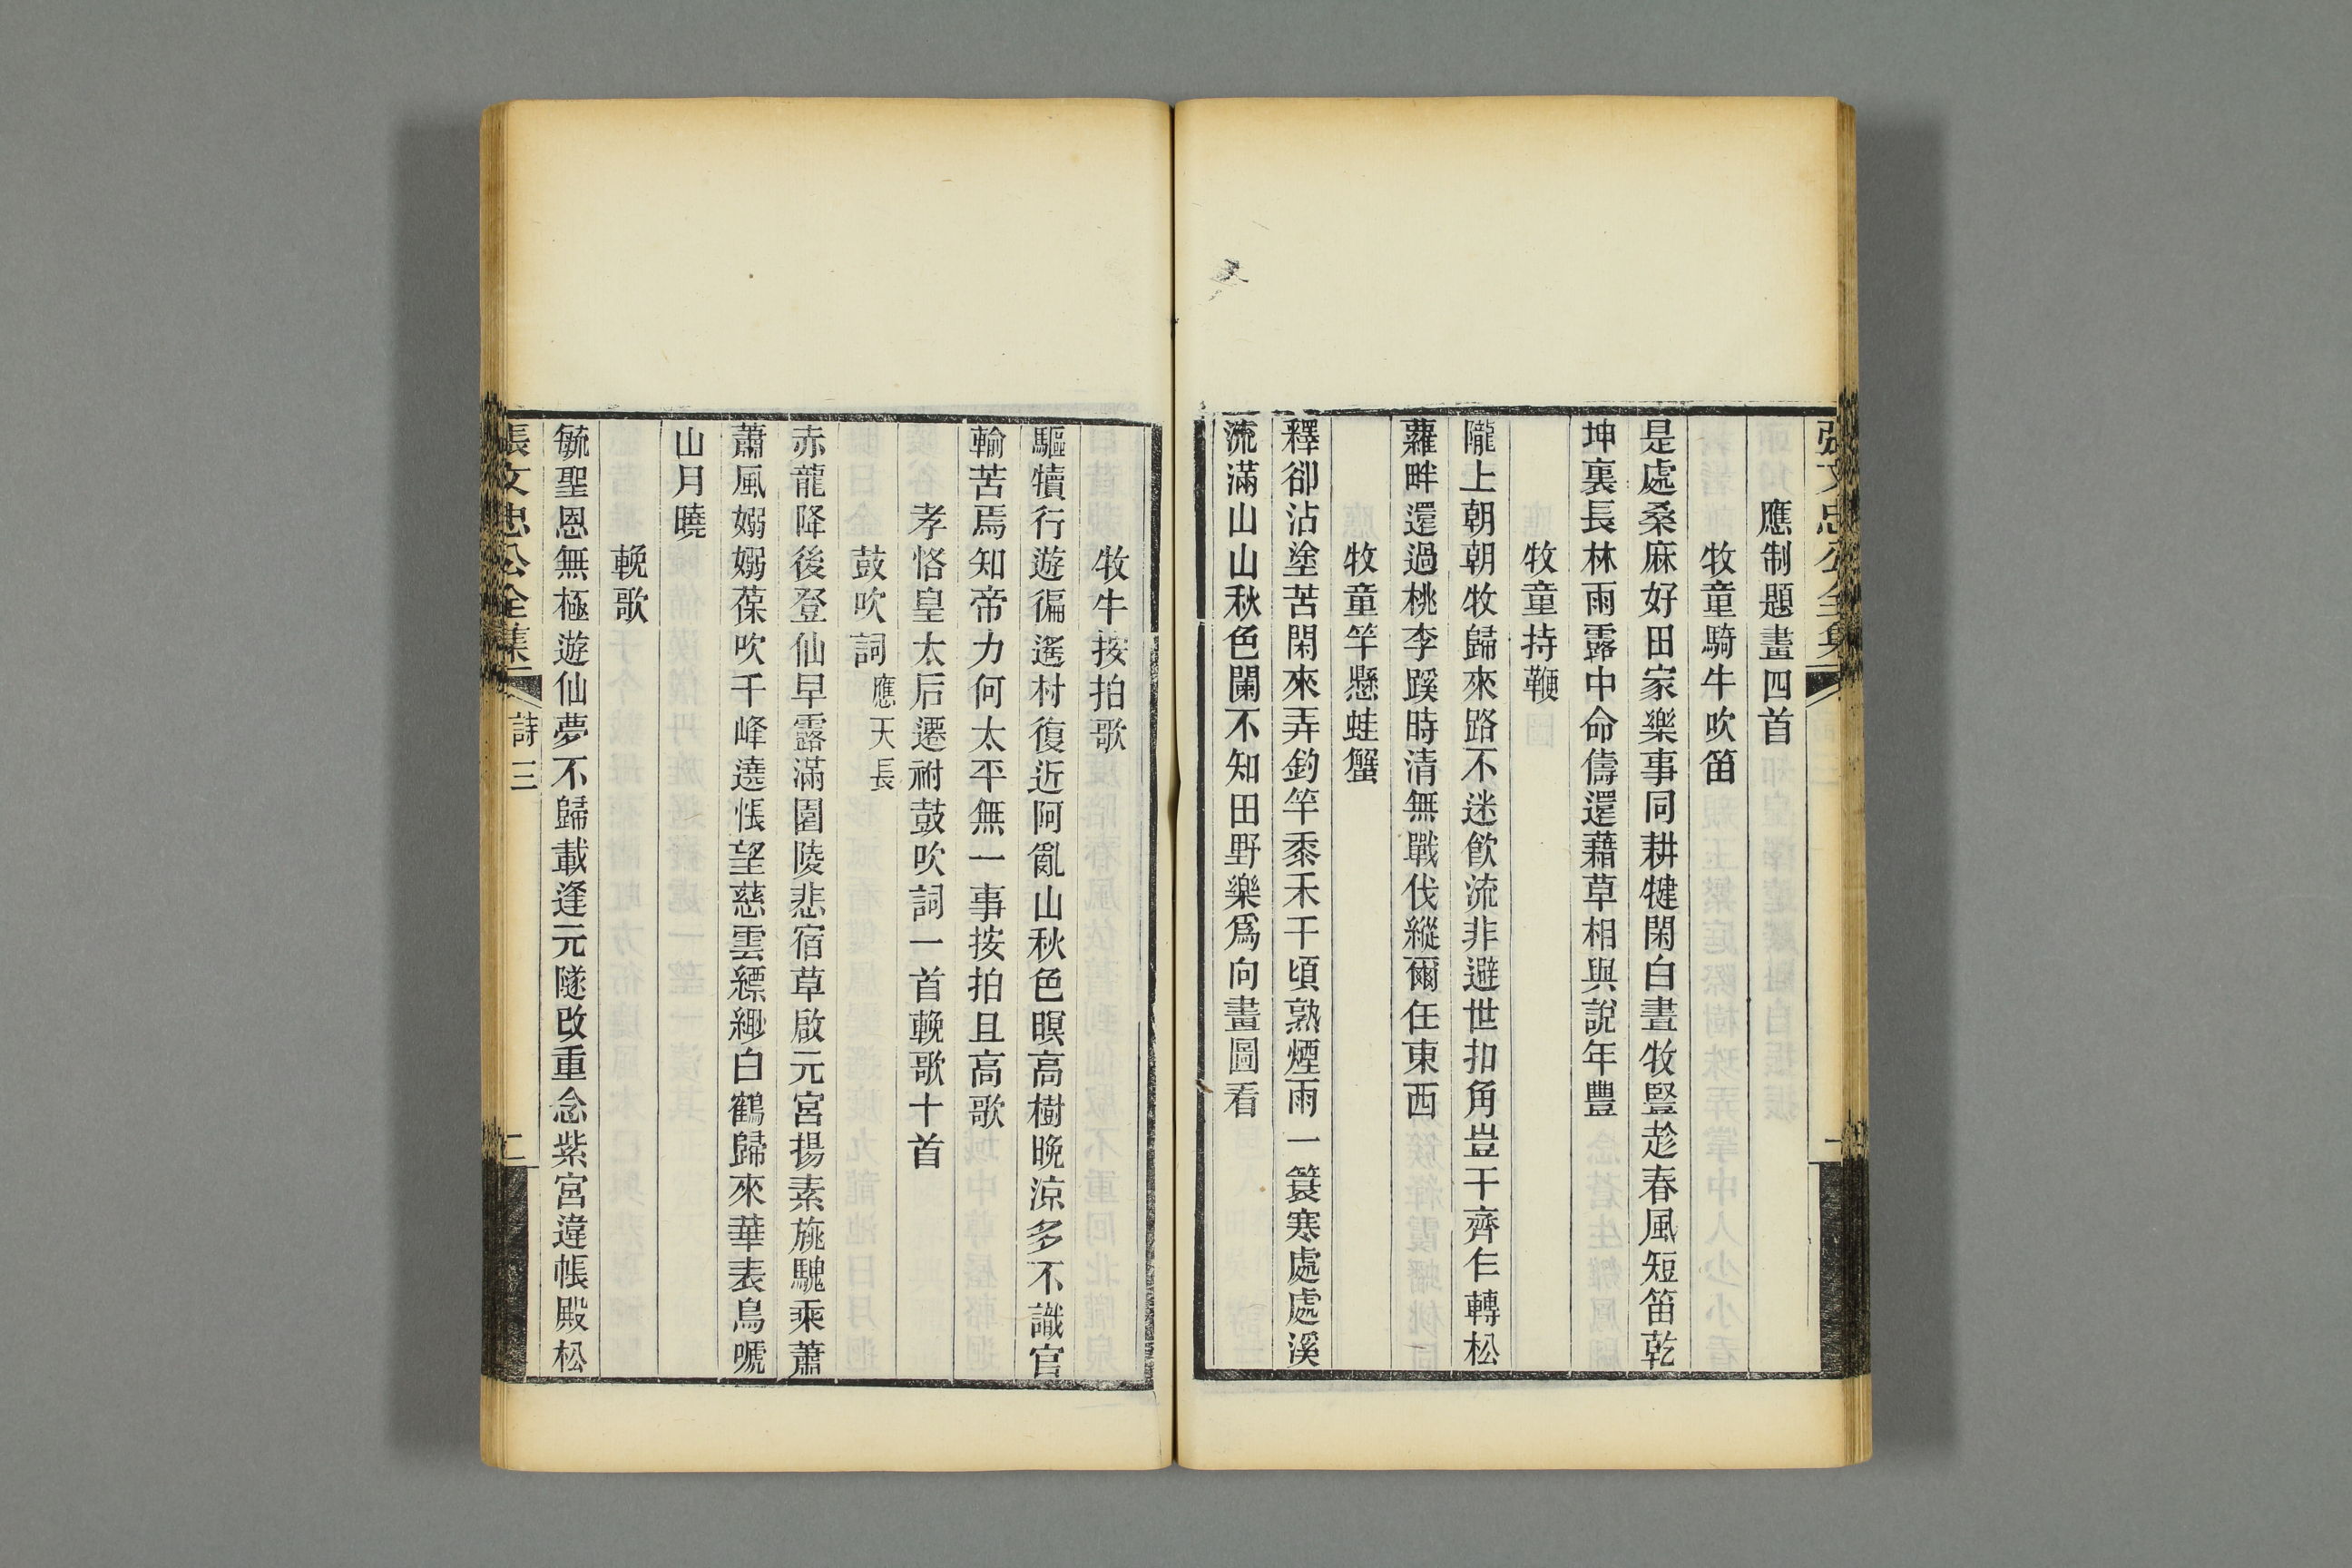 張文忠公全集
一
應制題畫四首
牧童騎牛吹笛
是處桑麻好田家樂事同耕犍閑白晝牧豎趁春風短笛乾
坤裏長林雨露中命儔還藉草相與說年豐
牧童持鞭
隴上朝朝牧歸來路不迷飲流非避世扣角豈干齊仁轉松
蘿畔還過桃李蹊時清無戰伐縱爾任東西
牧童竿懸蛙蟹
釋卻沾塗苦閑來弄釣竿黍禾千頃熟煙雨一簑寒處處溪
流滿山山秋色闌不知田野樂爲向畫圖看
牧牛按拍歌
驅犢行遊徧遙村復近阿亂山秋色暝高樹晚涼多不識官
輸苦焉知帝力何太平無一事按拍且高歌
孝恪皇太后遷祔鼓吹詞一首輓歌十首
鼓吹詞應天長
赤龍降後登仙早露滿園陵悲宿草啟元宮揚素旐騩乘蕭
蕭風嫋嫋葆吹千峰遶悵望慈雲縹緲白鶴歸來華表鳥嗁
山月曉
輓歌
毓聖恩無極遊仙夢不歸載逢元隧改重念紫宮違帳殿松
張文忠公全集
詩三
二